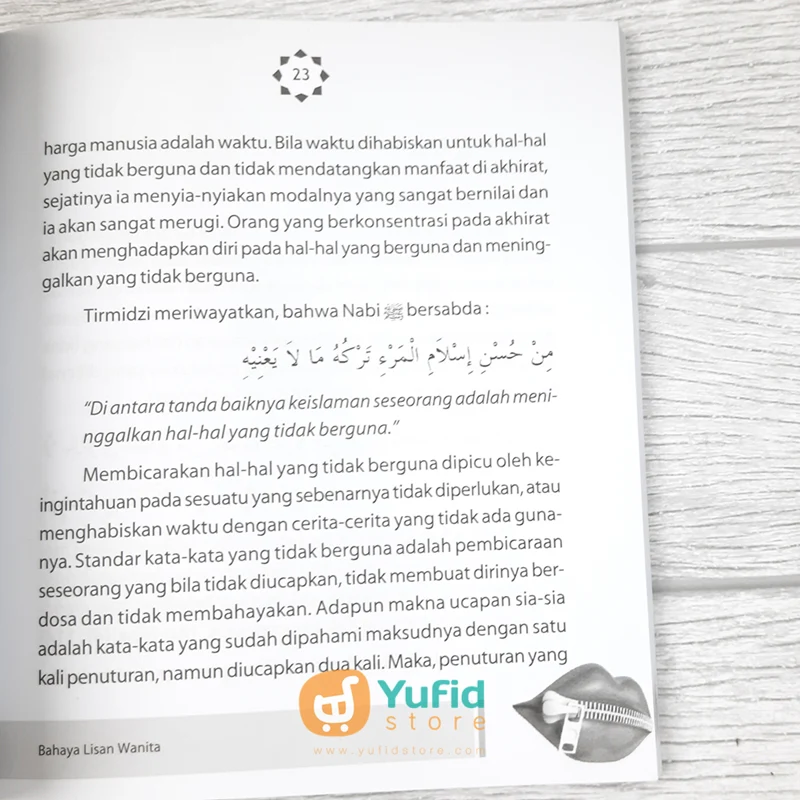 23
harga manusia adalah waktu. Bila waktu dihabiskan untuk hal-hal
yang tidak berguna dan tidak mendatangkan manfaat di akhirat,
sejatinya ia menyia-nyiakan modalnya yang sangat bernilai dan
ia akan sangat merugi. Orang yang berkonsentrasi pada akhirat
akan menghadapkan diri pada hal-hal yang berguna dan mening-
galkan yang tidak berguna.
Tirmidzi meriwayatkan, bahwa Nabi ﷺ bersabda :
مِنْ حُسْنِ إِسْلَامِ الْمَرْءِ تَرْكُهُ مَا لاَ يَعْنِيْهِ
“Di antara tanda baiknya keislaman seseorang adalah meni-
nggalkan hal-hal yang tidak berguna.”
Membicarakan hal-hal yang tidak berguna dipicu oleh ke-
ingintahuan pada sesuatu yang sebenarnya tidak diperlukan, atau
menghabiskan waktu dengan cerita-cerita yang tidak ada guna-
nya. Standar kata-kata yang tidak berguna adalah pembicaraan
seseorang yang bila tidak diucapkan, tidak membuat dirinya ber-
dosa dan tidak membahayakan. Adapun makna ucapan sia-sia
adalah kata-kata yang sudah dipahami maksudnya dengan satu
kali penuturan, namun diucapkan dua kali. Maka, penuturan yang
Yufid
store
www.yufidstore.com
Bahaya Lisan Wanita